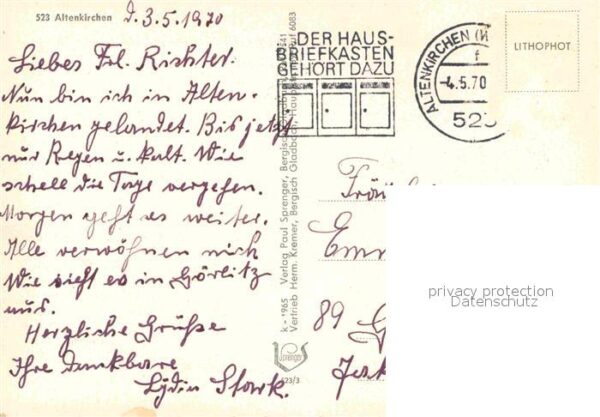 523 Altenkirchen
d. 3.5.1970
Liebes Frl. Richter.
Nun bin ich in Alten-
kirchen gelandet. Bis jetzt
nur Regen u. kalt. Wie
schell die Tage vergehen.
Morgen geht es weiter.
Alle verwöhnen mich
Wie sieht es in Görlitz
aus.
Herzliche Grüße
Ihre dankbare
Lydia Stark.
DER HAUS-
BRIEFKASTEN
GEHÖRT DAZU
ALTENKIRCHEN (W
f
-4.5.70
523
LITHOPHOT
K - 1965 Verlag Paul Sprenger, Bergisch
Vertrieb Herm. Kremer, Bergisch Gladbach, 6083
Sprenger
523/3
89
privacy protection
Datenschutz